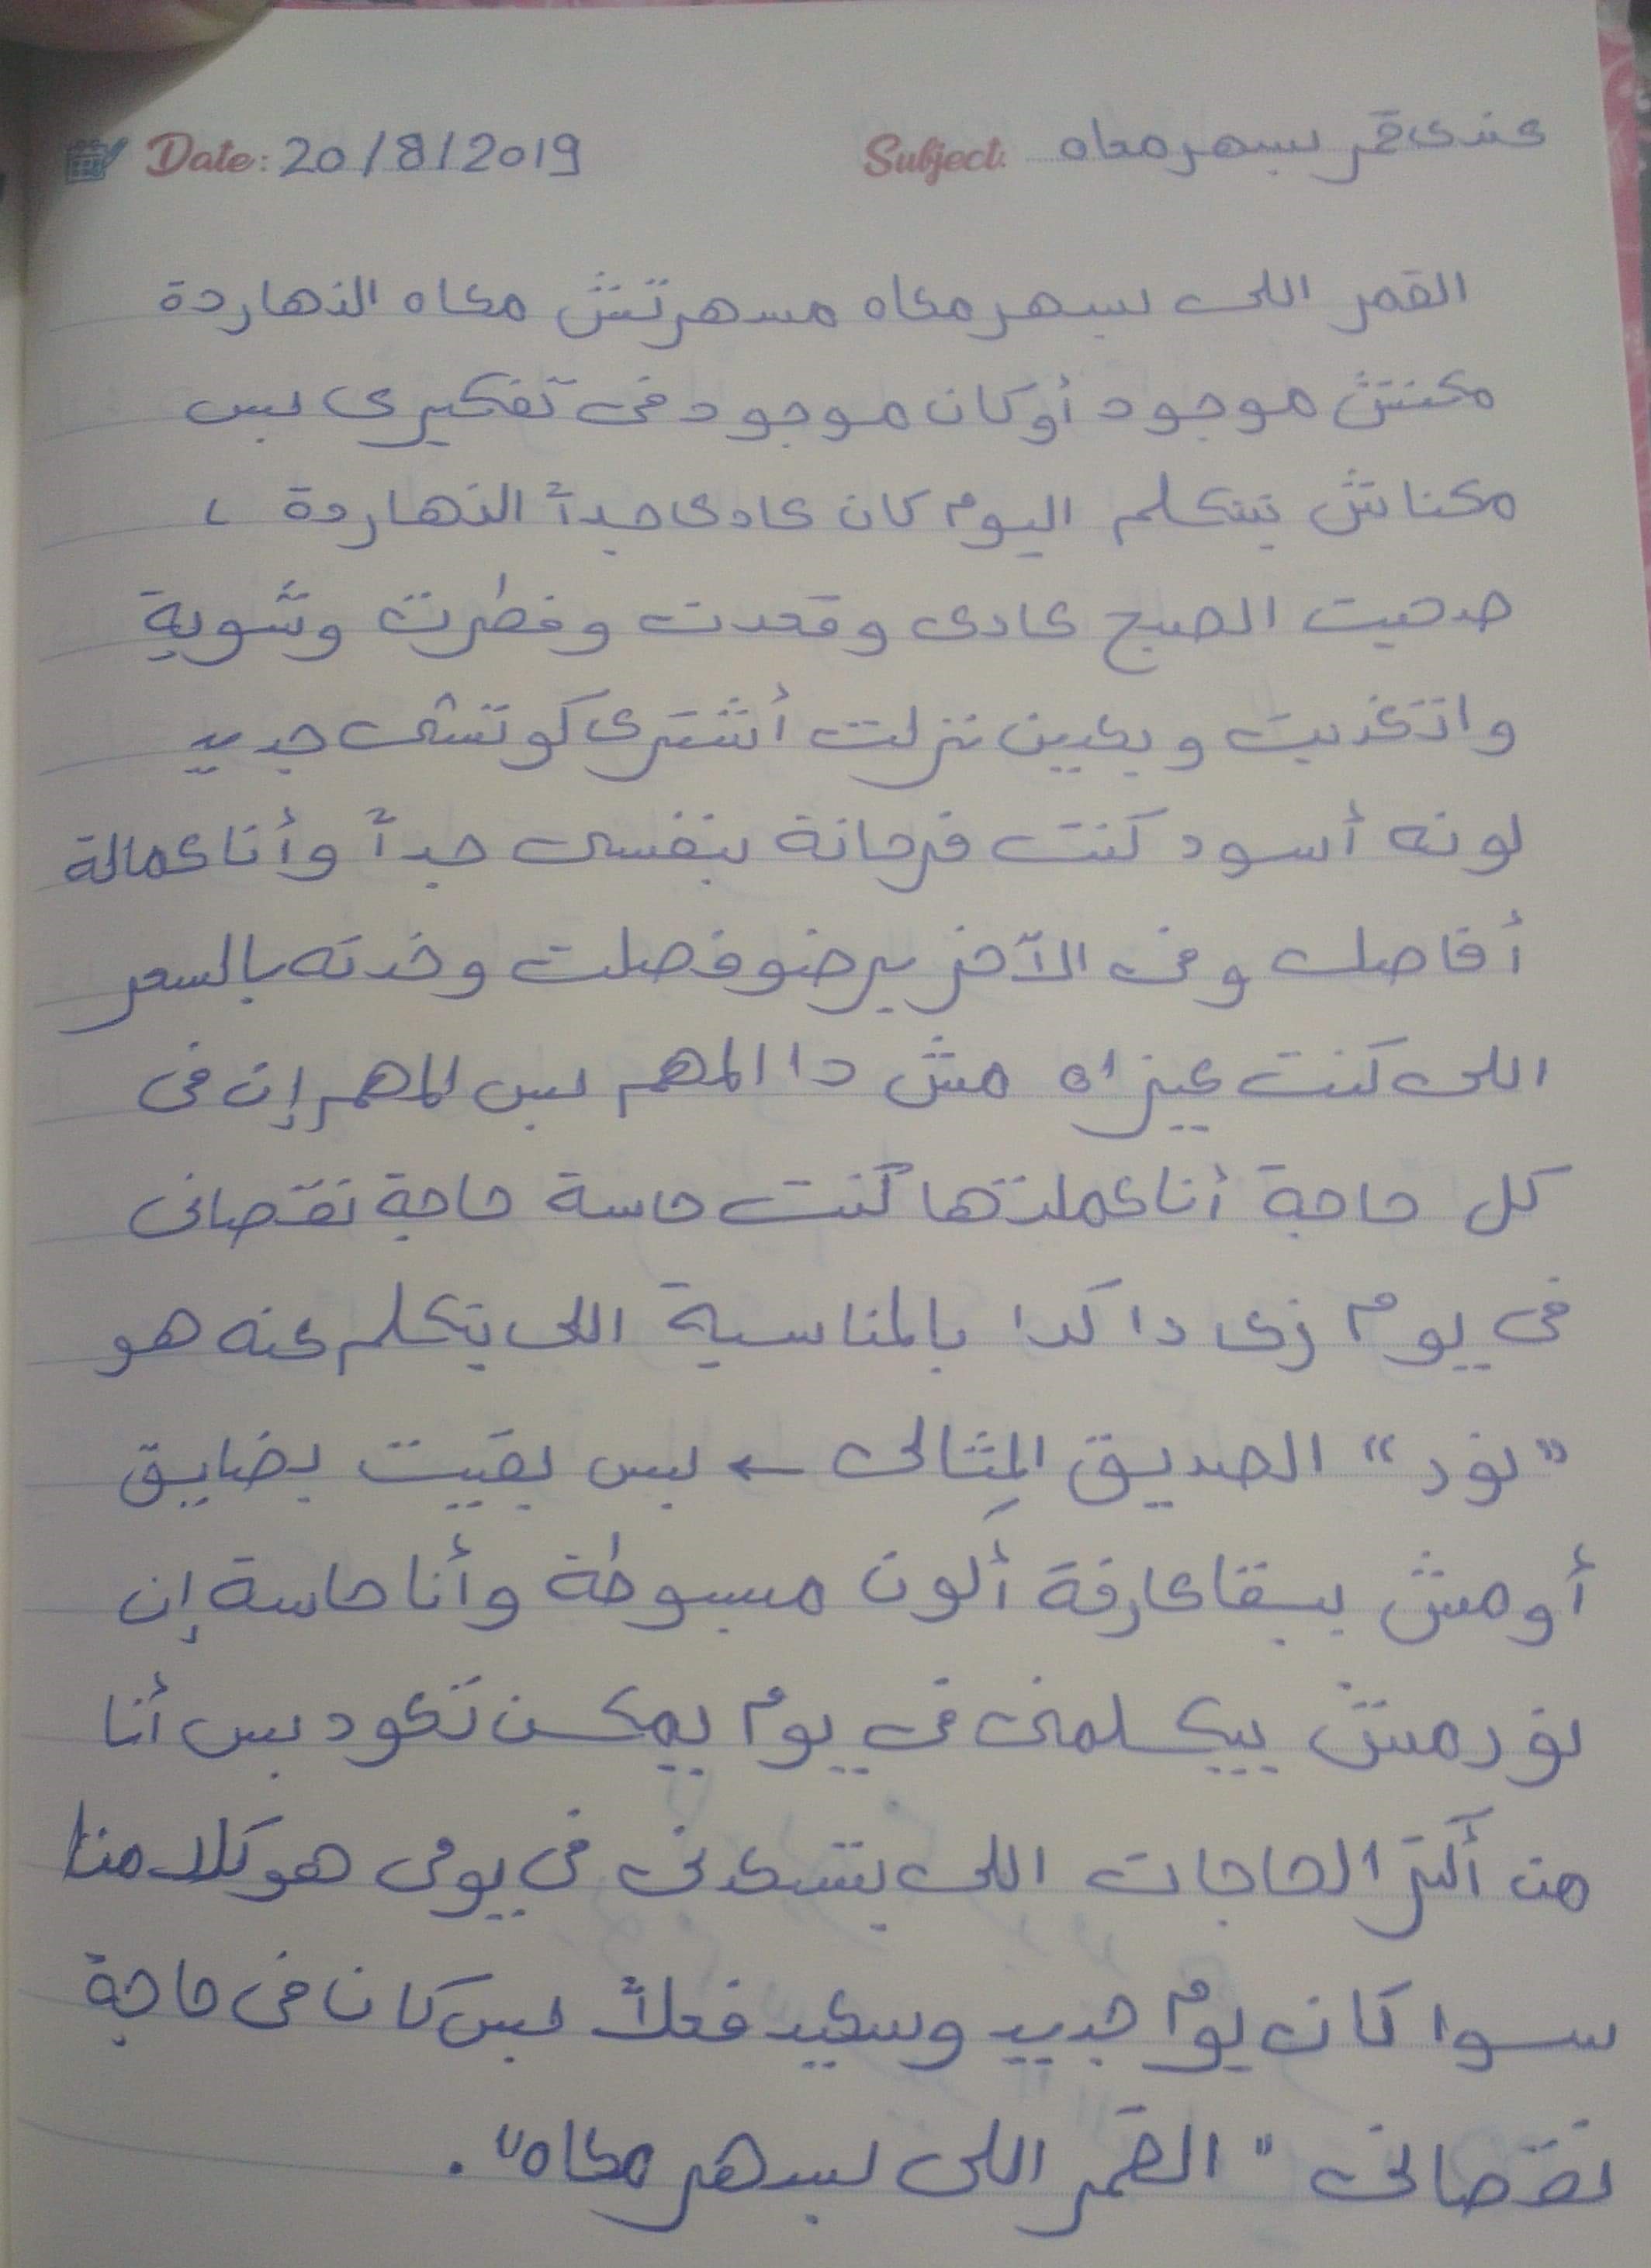 Date: 20/8/2019 Subject: عندى قمر بسهر معاه
القمر اللى بسهر معاه مسهرتش معاه النهاردة
مكنش موجود أو كان موجود فى تفكيرى بس
مكناش بنتكلم اليوم كان عادى جداً النهاردة ،
صحيت الصبح عادى وقعدت وفطرت وشوية
واتغديت وبعدين نزلت أشترى كوتشى جديد
لونه أسود كنت فرحانة بنفسى جداً وأنا عمالة
أفاصل وفى الآخر برضو فصلت وخدته بالسعر
اللى كنت عيزاه مش دا المهم بس المهم إن فى
كل حاجة أنا عملتها كنت حاسة حاجة نقصانى
فى يوم زى دا كدا بالمناسبة اللى بتكلم عنه هو
"نور" الصديق المِثالى ← بس بقيت بضايق
أو مش ببقا عارفة أكون مبسوطة وأنا حاسة إن
نور مش بيكلمنى فى يوم يمكن تعود بس أنا
من أكتر الحاجات اللى بتسعدنى فى يومى هو كلامنا
سوا كان يوم جديد وسعيد فعلاً بس كان فى حاجة
نقصانى " القمر اللى بسهر معاه".